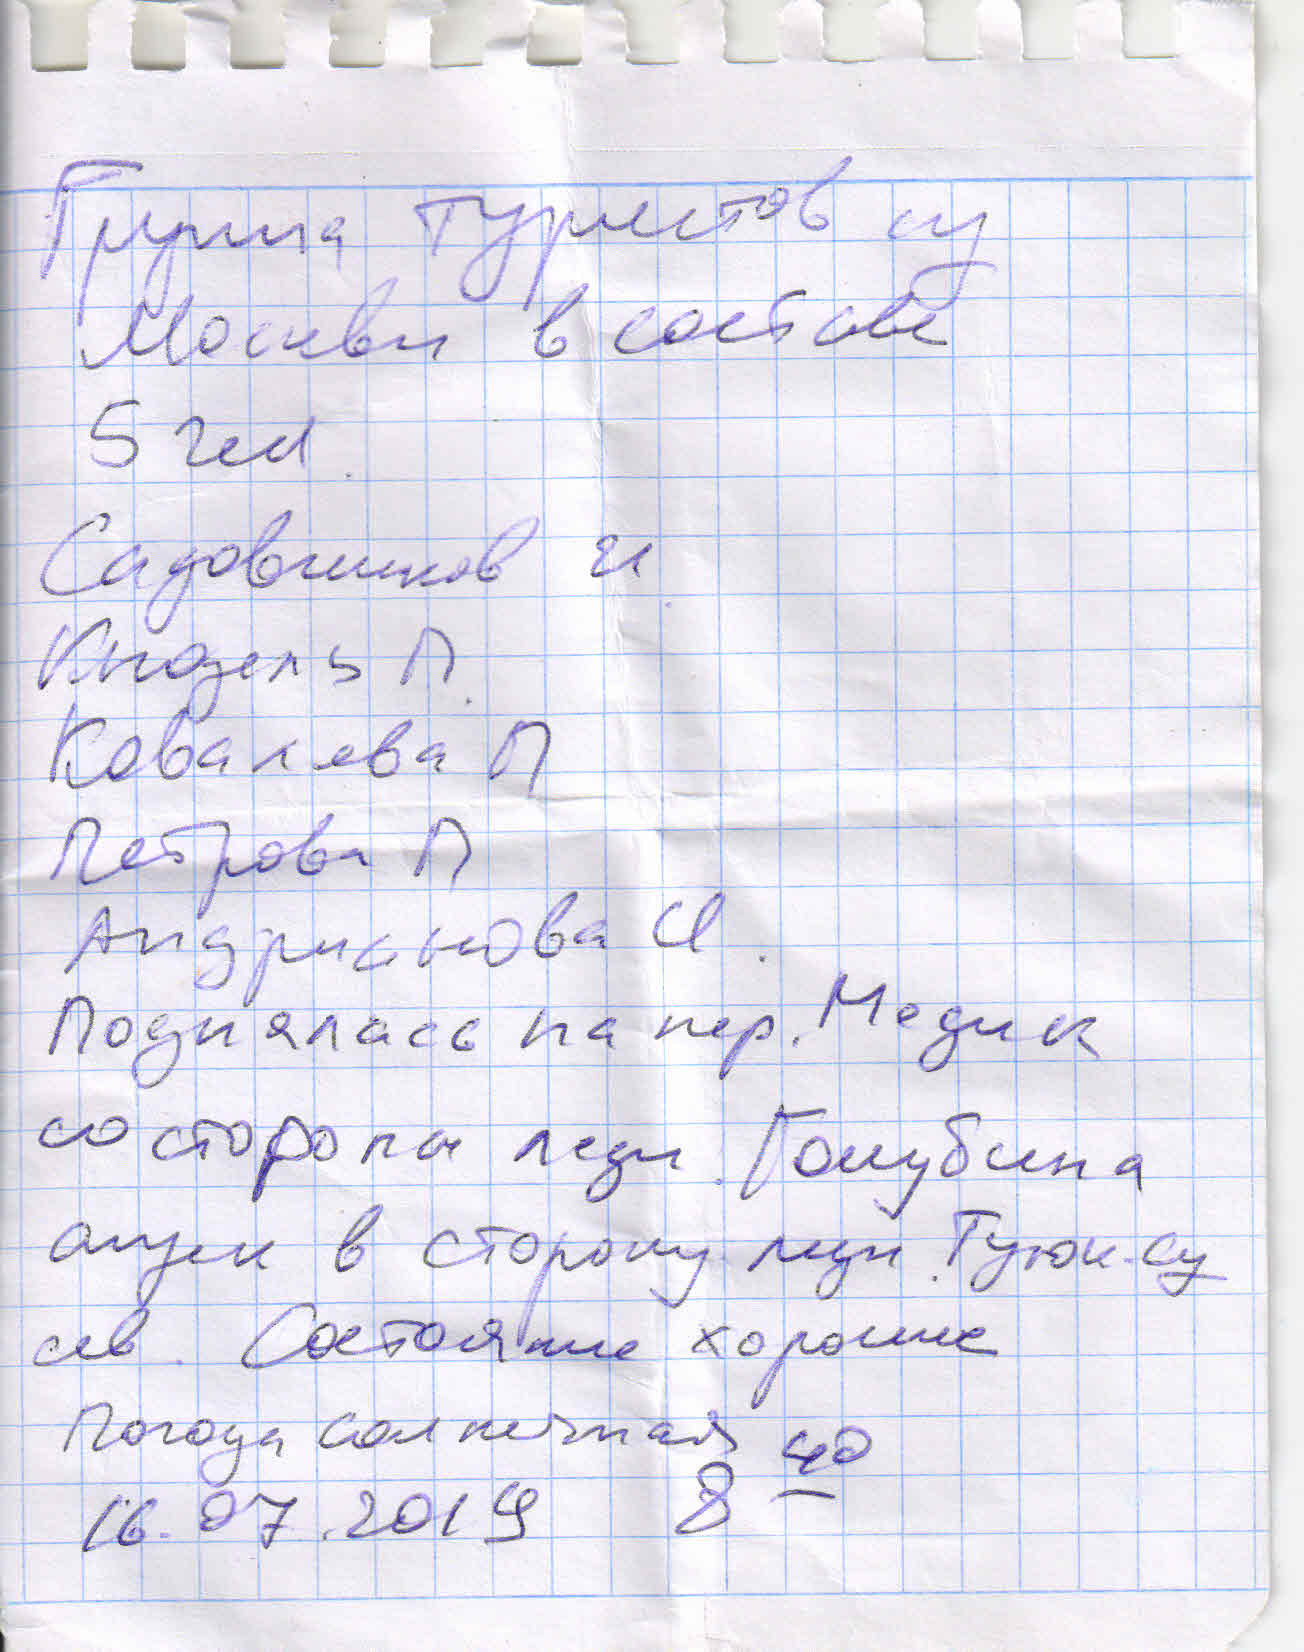 Группа туристов из
Москвы в составе
5 чел.
Садовников И.
Кнозель П.
Ковалева П
Петрова П
Андрианова И.
Поднялась на пер. Медик
со стороны ледн. Голубина
спуск в сторону ледн. Туюк-су
лев. Состояние хорошее
Погода солнечная 8 40
16.07.2019